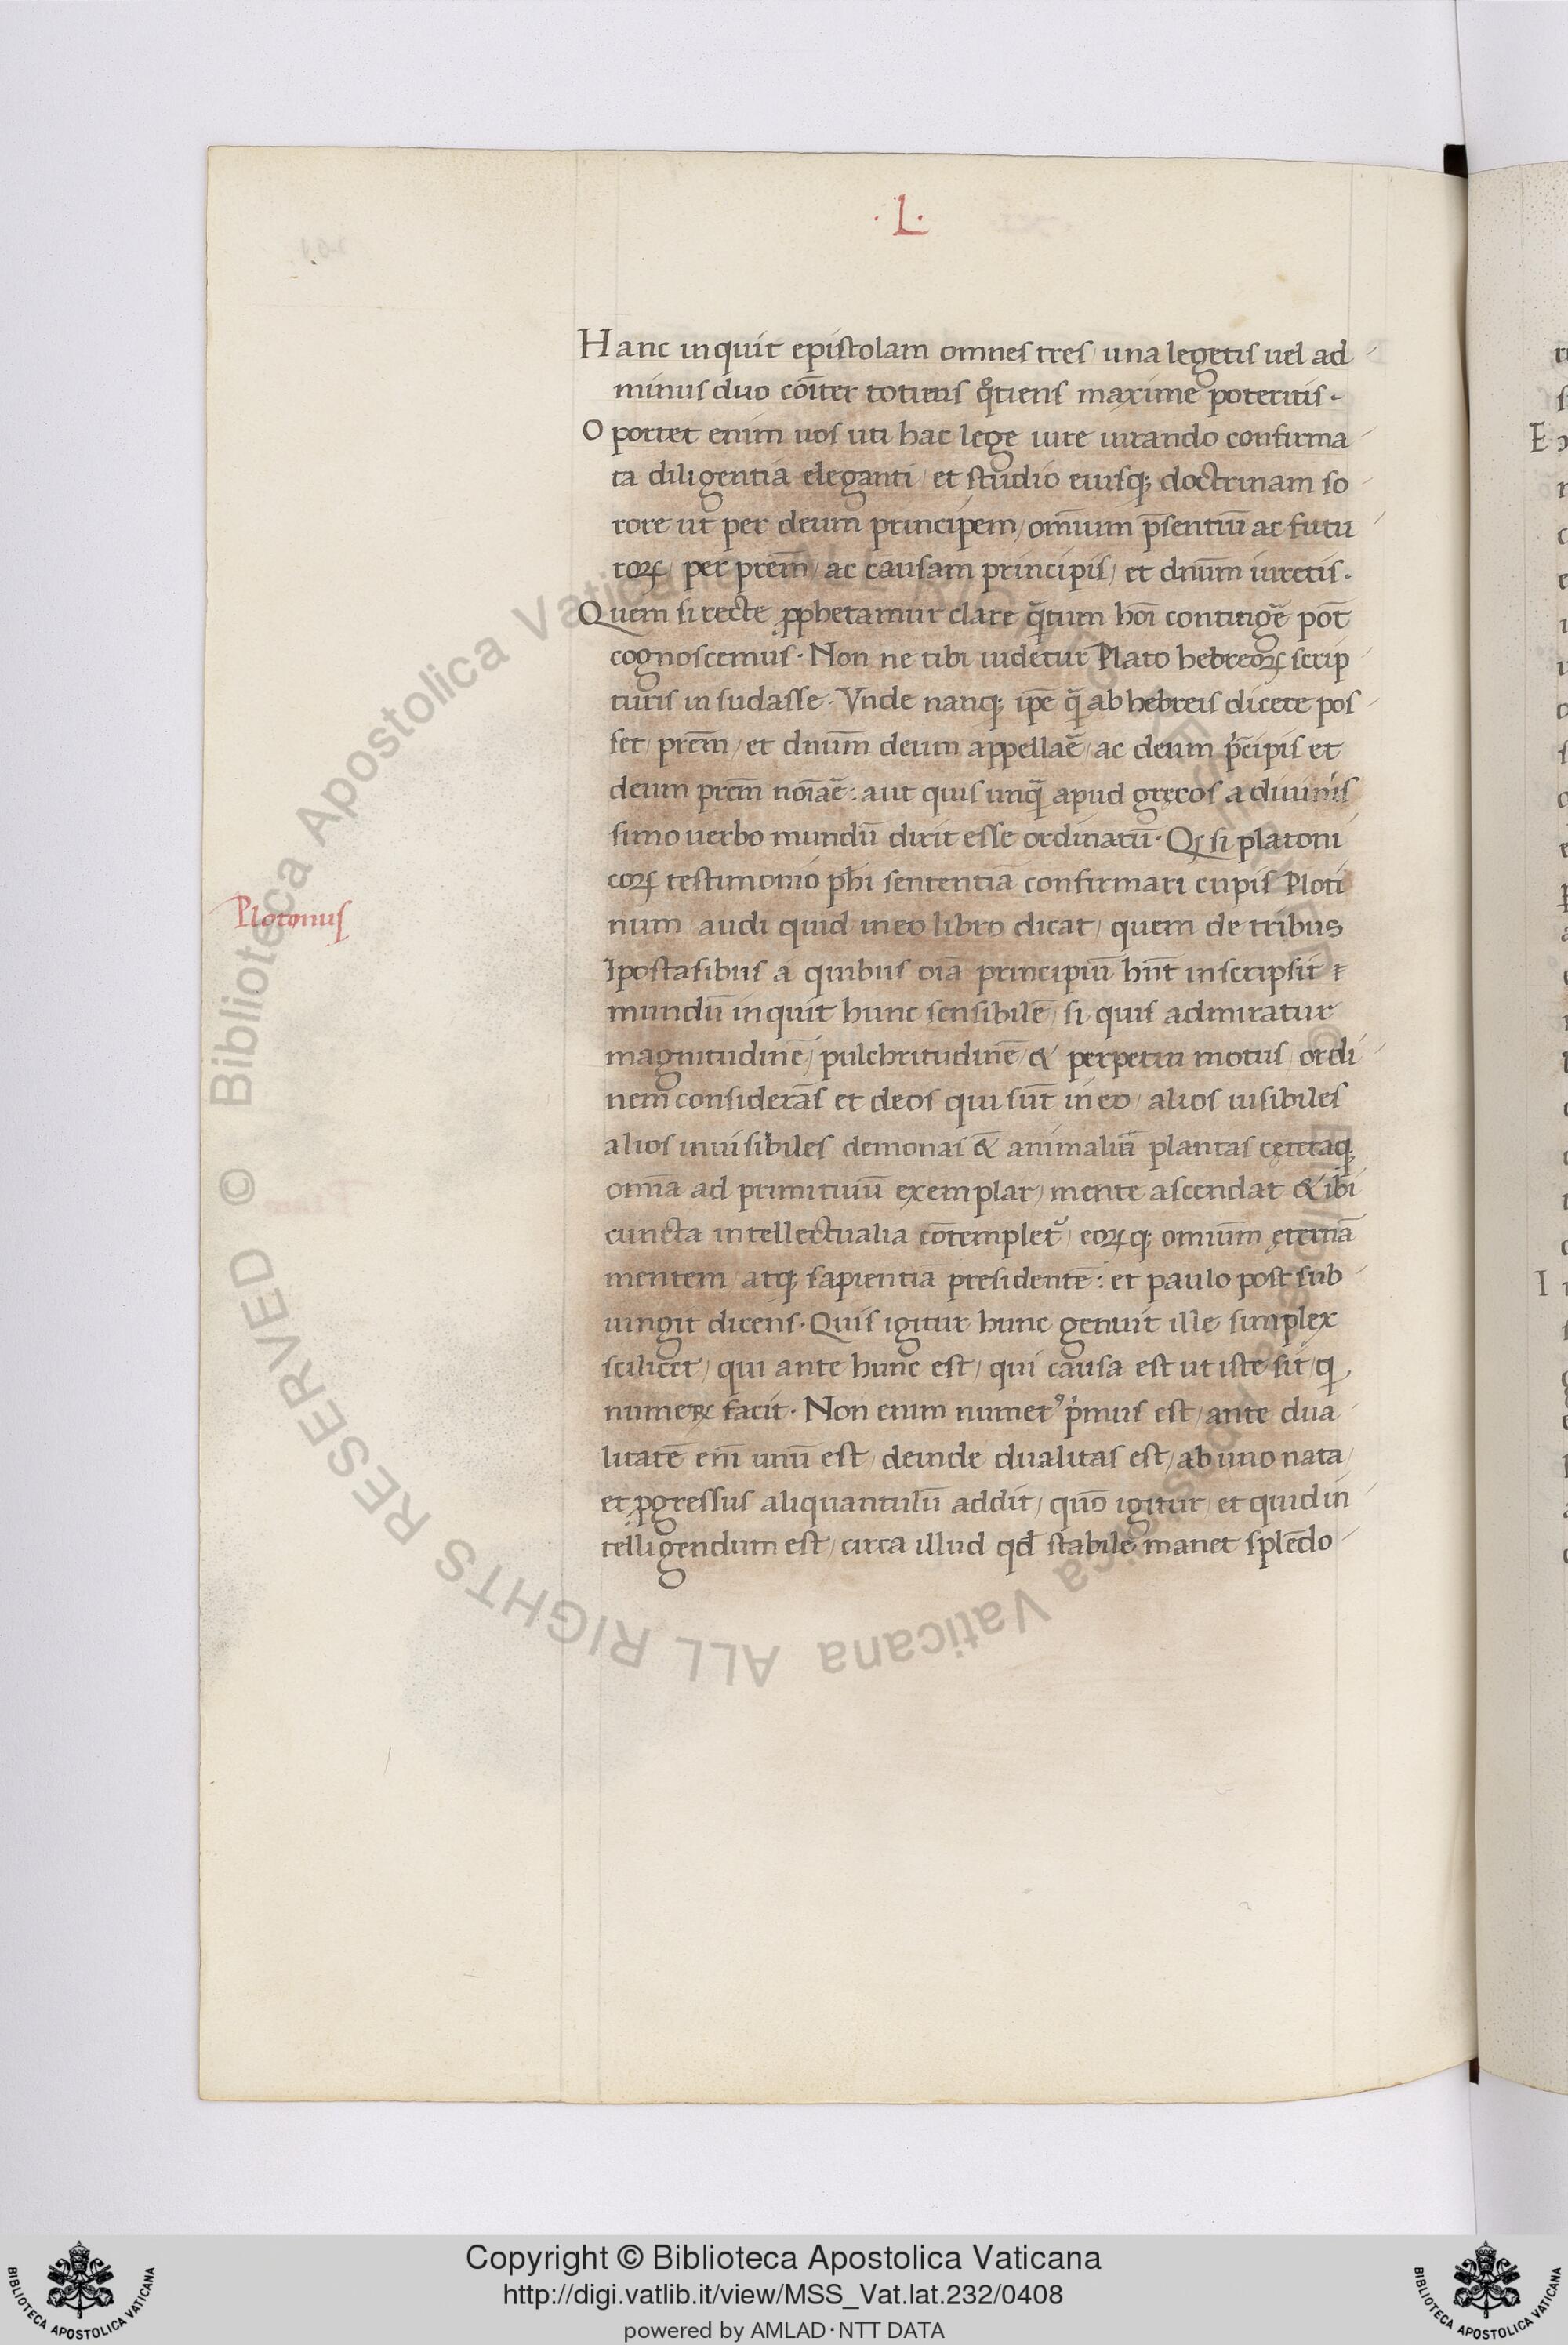 .L.
Hanc inquit epistolam omnes tres / una legetis uel ad
minus duo cōiter totiens qͦtiens maxime poteritis.
Oportet enim uos uti hac lege iure iurando confirma
ta diligentia eleganti / et studio eiusq; doctrinam so
rore ut per deum principem / omīum p̄sentiū ac futu
roꝝ / per prēm / ac causam principis / et dnūm iuretis.
Quem si recte ꝓphetamur clare qᷓtum hoī contingē pōt
cognoscemus. Non ne tibi uidetur Plato hebreoꝝ scrip
turis insudasse. Vnde nanq; ip̄e qᷓ ab hebreis dicere pos
set / prēm / et dnūm deum appellaē / ac deum p̄cipis et
deum prēm noīaē: aut quis unqᷓ apud gręcos a diuinis
simo uerbo mundū dixit esse ordinatū. Qꝫ si platoni
coꝝ testimonio phī sententiā confirmari cupis Ploti
num audi quid in eo libro dicat / quem de tribus
Plotonus
Ipostasibus a quibus oīa principiū hn̄t inscripsit
mundū inquit hunc sensibilē / si quis admiratur
magnitudinē / pulchritudinē & perpetui motus / ordi
nem considerās et deos qui sūt in eo / alios uisibiles
alios inuisibiles demonas & animaliū plantas cęteraq;
omīa ad primitiuū exemplar / mente ascendat & ibi
cuncta intellectualia cōtempletᷣ / eoꝝq; omiūm ęternā
mentem atq; sapientiā presidentē: et paulo post sub
iungit dicens. Quis igitur hunc genuit ille simplex
scilicet / qui ante hunc est / qui causa est ut iste sit / q
numeꝝ facit. Non enim numerꝰ p̍mus est / ante dua
litatē em̄ unū est / deinde dualitas est / ab uno nata /
et ꝓgressus aliquantulū addit / quō igitur / et quid in
telligendum est / circa illud qd̄ stabile manet splēdo
Copyright © Biblioteca Apostolica Vaticana
http://digi.vatlib.it/view/MSS_Vat.lat.232/0408
powered by AMLAD·NTT DATA
BIBLIOTECA APOSTOLICA VATICANA
BIBLIOTECA APOSTOLICA VATICANA
© Biblioteca Apostolica Vaticana ALL RIGHTS RESERVED © Biblioteca Apostolica Vaticana ALL RIGHTS RESERVED